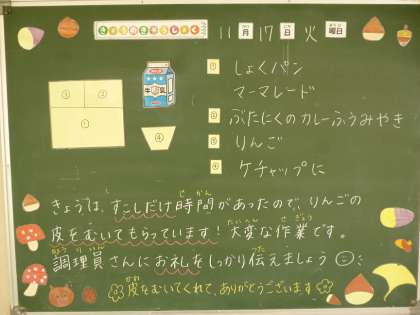 きょうのきゅうしょく
11月17日火曜日
① しょくパン
マーマレード
② ぶたにくのカレーふうみやき
③ りんご
④ ケチャップに
③ ②
①
④
牛乳
きょうは、すこしだけ時間があったので、りんごの
皮をむいてもらっています！大変な作業です。
調理員さんにお礼をしっかり伝えましょう
皮をむいてくれて、ありがとうございます